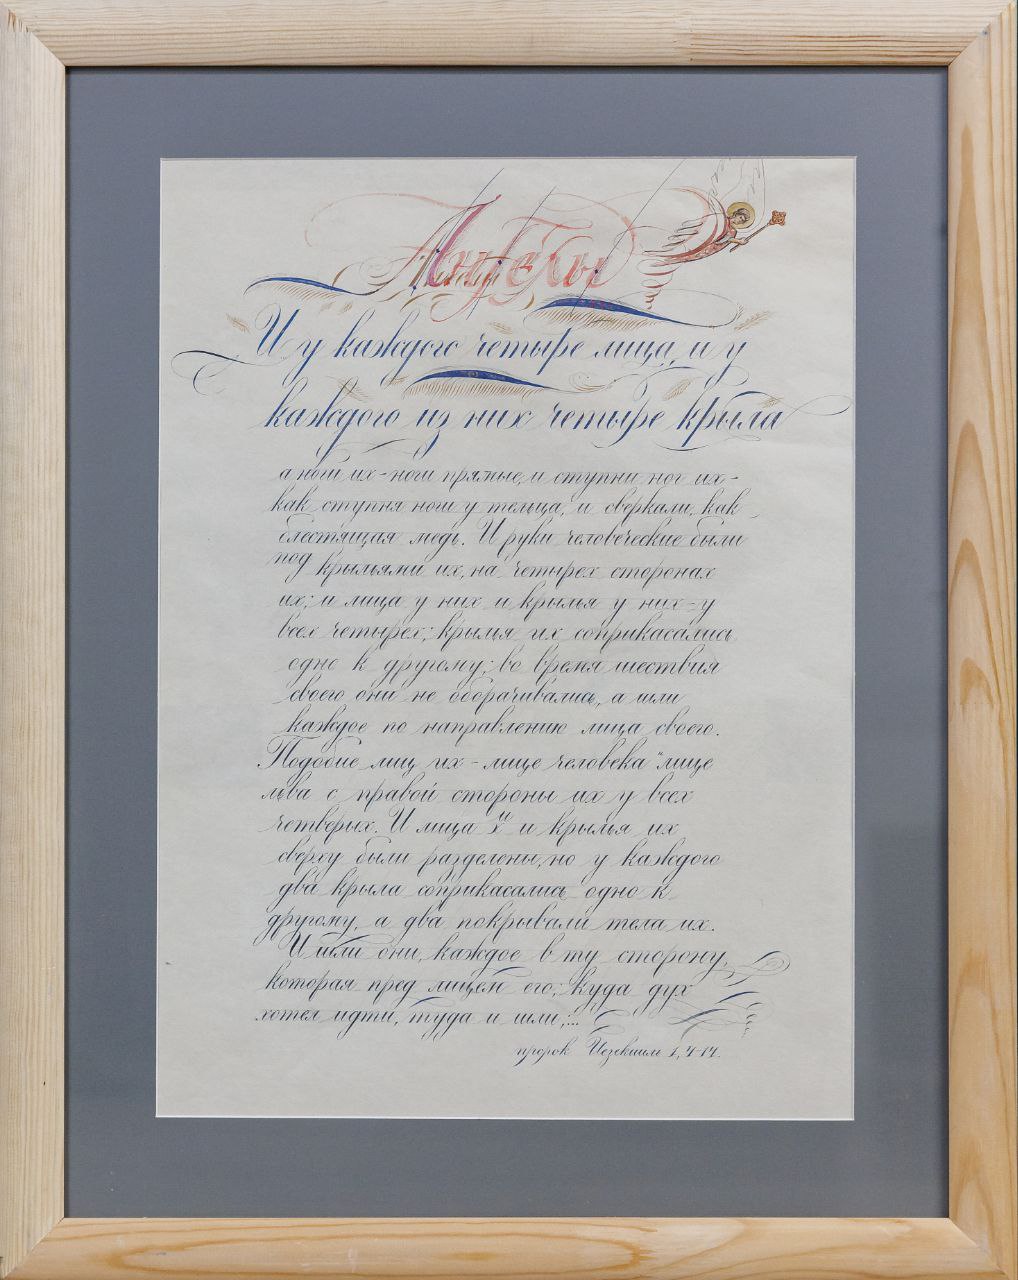 Ангелы
И у каждого четыре лица, и у
каждого из них четыре крыла
а ноги их - ноги прямые, и ступни ног их -
как ступня ноги у тельца, и сверкали, как
блестящая медь. И руки человеческие были
под крыльями их, на четырех сторонах
их; и лица у них и крылья у них - у
всех четырех; крылья их соприкасались
одно к другому; во время шествия
своего они не оборачивались, а шли
каждое по направлению лица своего.
Подобие лиц их - лице человека и лице
льва с правой стороны их у всех
четверых. И лица и крылья их
сверху были разделены, но у каждого
два крыла соприкасались одно к
другому, а два покрывали тела их.
И шли они, каждое в ту сторону,
которая пред лицем его; куда дух
хотел идти, туда и шли;...
пророк Иезекииль 1, 4-14.